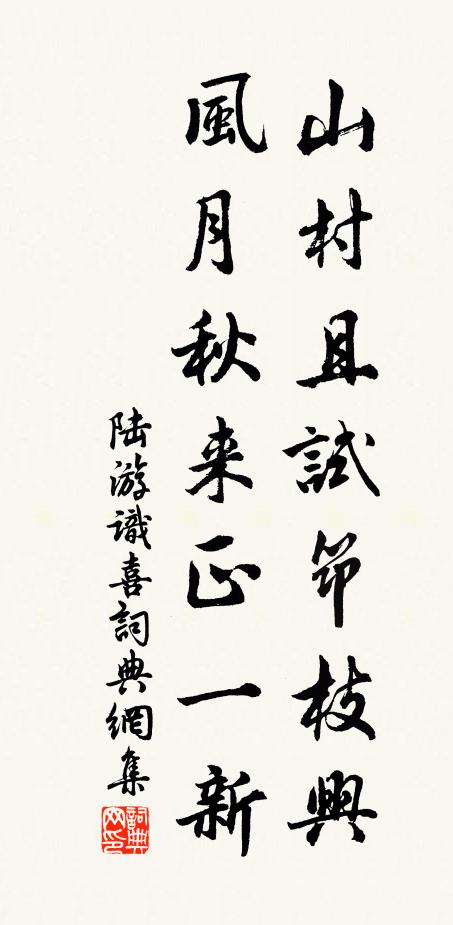 山村且試笻枝興
風月秋来正一新
陆游識喜詞典網集
詞典网印